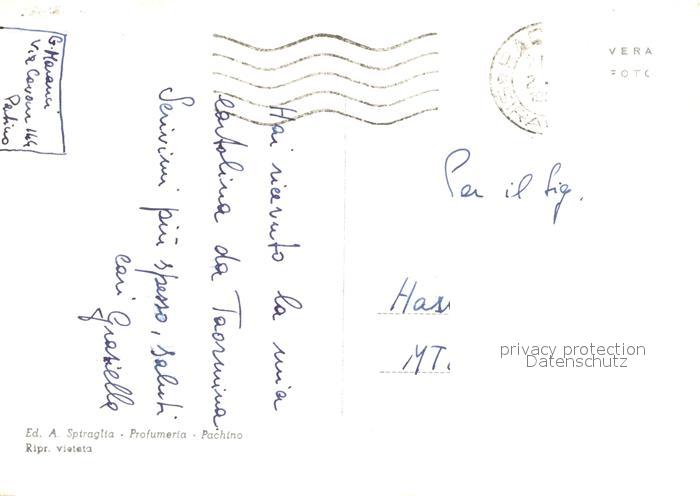 G. Maranci
Via Cavour 144
Hai ricevuto la mia
cartolina da Taormina.
Scrivimi più spesso, saluti
cari Graziella
VERA
FOTO
Per il Sig.
privacy protection
Datenschutz
Ed. A. Spiraglia - Profumeria - Pachino
Ripr. vietata